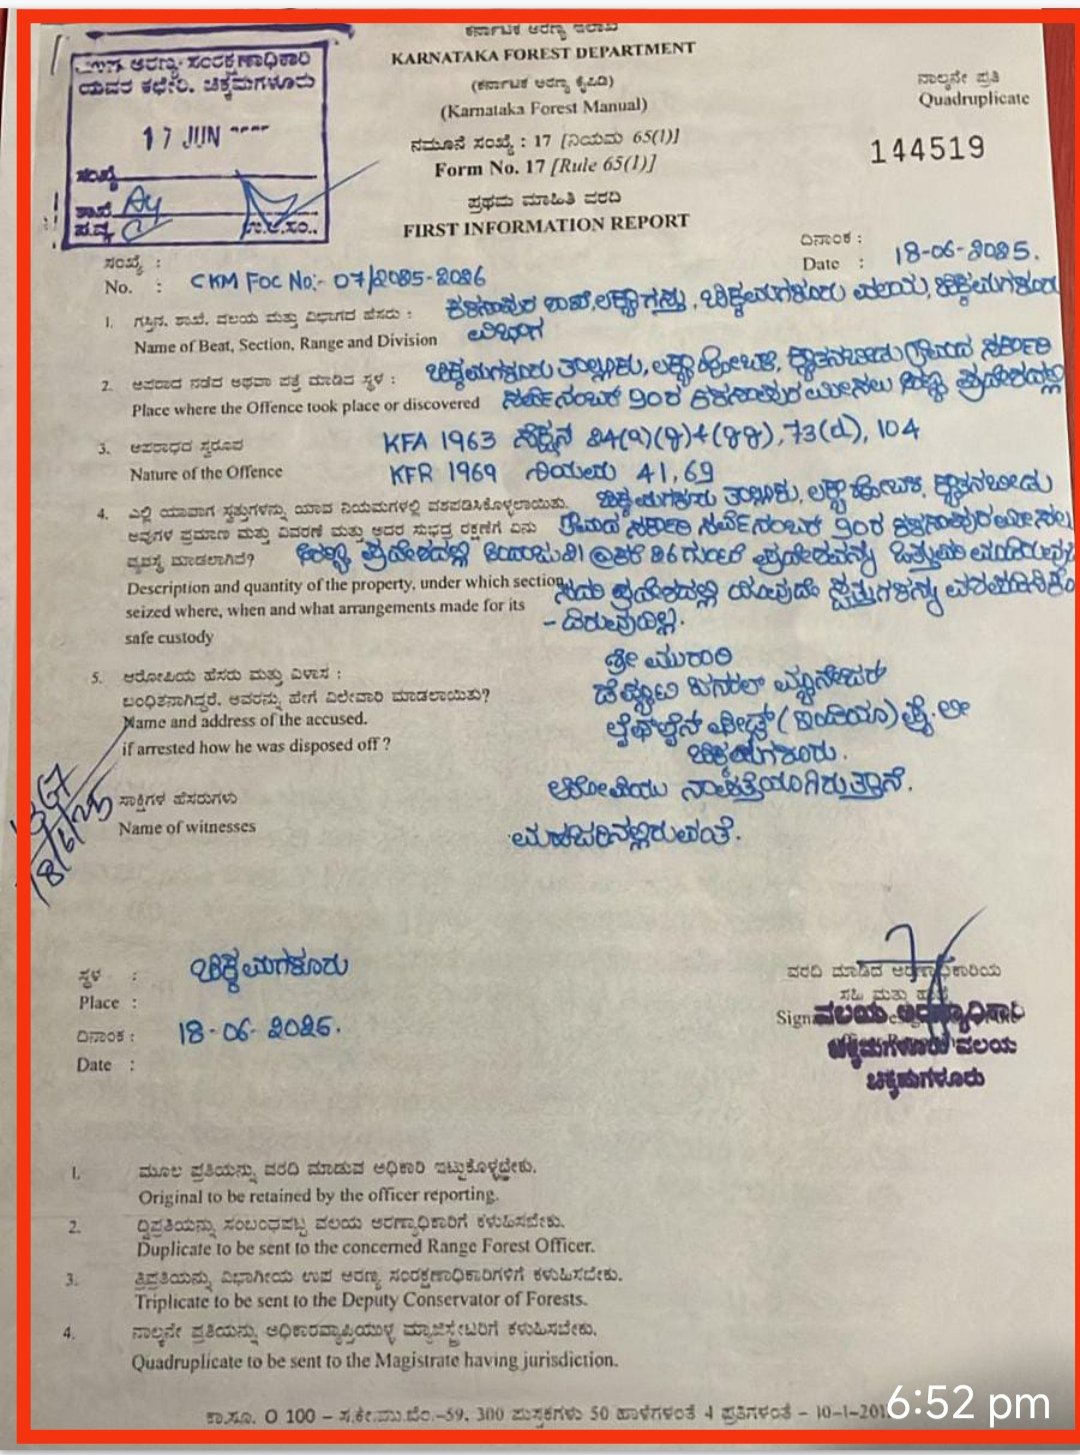 ಕರ್ನಾಟಕ ಅರಣ್ಯ ಇಲಾಖೆ
KARNATAKA FOREST DEPARTMENT
(ಕರ್ನಾಟಕ ಅರಣ್ಯ ಕೈಪಿಡಿ)
(Karnataka Forest Manual)
ನಮೂನೆ ಸಂಖ್ಯೆ : 17 [ನಿಯಮ 65(1)]
Form No. 17 [Rule 65(1)]
ಪ್ರಥಮ ಮಾಹಿತಿ ವರದಿ
FIRST INFORMATION REPORT
ನಾಲ್ಕನೇ ಪ್ರತಿ
Quadruplicate
144519
ಅರಣ್ಯ ಸಂರಕ್ಷಣಾಧಿಕಾರಿ
ಯವರ ಕಛೇರಿ, ಚಿಕ್ಕಮಗಳೂರು
17 JUN
ಸಂಖ್ಯೆ
ಶಾಖೆ
ಉ.ಅ.ಸಂ.,
ದಿನಾಂಕ :
Date : 18-06-2025.
ಸಂಖ್ಯೆ :
No. : CKM FOC No:- 07/2025-2026
1. ಗಸ್ತಿನ, ಶಾಖೆ, ವಲಯ ಮತ್ತು ವಿಭಾಗದ ಹೆಸರು : ಶಾಖೆ, ಲಕ್ಯಾ ಗಸ್ತು, ಚಿಕ್ಕಮಗಳೂರು ವಲಯ, ಚಿಕ್ಕಮಗಳೂರು
Name of Beat, Section, Range and Division ವಿಭಾಗ
2. ಅಪರಾಧ ನಡೆದ ಅಥವಾ ಪತ್ತೆ ಮಾಡಿದ ಸ್ಥಳ : ಚಿಕ್ಕಮಗಳೂರು ತಾಲ್ಲೂಕು, ಲಕ್ಯಾ ಹೋಬಳಿ, ಕ್ಯಾತನಬೀಡು ಗ್ರಾಮದ ಸರ್ಕಾರಿ
Place where the Offence took place or discovered ಸರ್ವೆ ನಂಬರ್ ಮೀಸಲು ಅರಣ್ಯ ಪ್ರದೇಶದಲ್ಲಿ
3. ಅಪರಾಧದ ಸ್ವರೂಪ KFA 1963 ಸೆಕ್ಷನ್ 73(d), 104
Nature of the Offence KFR 1969 ನಿಯಮ 41, 69
4. ಎಲ್ಲಿ ಯಾವಾಗ ಸ್ವತ್ತುಗಳನ್ನು ಯಾವ ನಿಯಮಗಳಲ್ಲಿ ವಶಪಡಿಸಿಕೊಳ್ಳಲಾಯಿತು. ಚಿಕ್ಕಮಗಳೂರು ತಾಲ್ಲೂಕು, ಲಕ್ಯಾ ಹೋಬಳಿ, ಕ್ಯಾತನಬೀಡು
ಅವುಗಳ ಪ್ರಮಾಣ ಮತ್ತು ವಿವರಣೆ ಮತ್ತು ಅದರ ಸುಭದ್ರ ರಕ್ಷಣೆಗೆ ಏನು ಗ್ರಾಮದ ಸರ್ಕಾರಿ ಸರ್ವೆ ನಂಬರ್ ಮೀಸಲು
ವ್ಯವಸ್ಥೆ ಮಾಡಲಾಗಿದೆ? ಅರಣ್ಯ ಪ್ರದೇಶದಲ್ಲಿ ಎಕರೆ ಗುಂಟೆ ಪ್ರದೇಶವನ್ನು ಒತ್ತುವರಿ
Description and quantity of the property, under which section ಸದರಿ ಪ್ರದೇಶದಲ್ಲಿ ಯಾವುದೇ ಸ್ವತ್ತುಗಳನ್ನು
seized where, when and what arrangements made for its
safe custody
5. ಆರೋಪಿಯ ಹೆಸರು ಮತ್ತು ವಿಳಾಸ : ಶ್ರೀ ಮುರಾರಿ
ಬಂಧಿತನಾಗಿದ್ದರೆ, ಅವರನ್ನು ಹೇಗೆ ವಿಲೇವಾರಿ ಮಾಡಲಾಯಿತು? ಡೆಪ್ಯೂಟಿ ಜನರಲ್ ಮ್ಯಾನೇಜರ್
Name and address of the accused. ಲೈಫ್‌ಲೈನ್ ಫೀಡ್ಸ್ (ಇಂಡಿಯಾ) ಪ್ರೈ.ಲೀ
if arrested how he was disposed off ? ಚಿಕ್ಕಮಗಳೂರು.
ಸಾಕ್ಷಿಗಳ ಹೆಸರುಗಳು ಆರೋಪಿಯು ನಾಪತ್ತೆಯಾಗಿರುತ್ತಾನೆ.
Name of witnesses ಮಹಜರಿನಲ್ಲಿರುವಂತೆ.
18/6/25
ಸ್ಥಳ : ಚಿಕ್ಕಮಗಳೂರು
Place :
ದಿನಾಂಕ : 18-06-2025.
Date :
ವರದಿ ಮಾಡಿದ ಅರಣ್ಯಾಧಿಕಾರಿಯ
ಸಹಿ ಮತ್ತು
ವಲಯ ಅರಣ್ಯಾಧಿಕಾರಿ
ಚಿಕ್ಕಮಗಳೂರು ವಲಯ
ಚಿಕ್ಕಮಗಳೂರು
1. ಮೂಲ ಪ್ರತಿಯನ್ನು ವರದಿ ಮಾಡುವ ಅಧಿಕಾರಿ ಇಟ್ಟುಕೊಳ್ಳಬೇಕು.
Original to be retained by the officer reporting.
2. ದ್ವಿಪ್ರತಿಯನ್ನು ಸಂಬಂಧಪಟ್ಟ ವಲಯ ಅರಣ್ಯಾಧಿಕಾರಿಗೆ ಕಳುಹಿಸಬೇಕು.
Duplicate to be sent to the concerned Range Forest Officer.
3. ತ್ರಿಪ್ರತಿಯನ್ನು ವಿಭಾಗೀಯ ಉಪ ಅರಣ್ಯ ಸಂರಕ್ಷಣಾಧಿಕಾರಿಗಳಿಗೆ ಕಳುಹಿಸಬೇಕು.
Triplicate to be sent to the Deputy Conservator of Forests.
4. ನಾಲ್ಕನೇ ಪ್ರತಿಯನ್ನು ಅಧಿಕಾರವ್ಯಾಪ್ತಿಯುಳ್ಳ ಮ್ಯಾಜಿಸ್ಟ್ರೇಟರಿಗೆ ಕಳುಹಿಸಬೇಕು.
Quadruplicate to be sent to the Magistrate having jurisdiction.
ಕಾ.ಸೂ. O 100 – ಸ.ಕೇ.ಮು.ಬೆಂ.–59, 300 ಪುಸ್ತಕಗಳು 50 ಹಾಳೆಗಳಂತೆ 4 ಪ್ರತಿಗಳಂತೆ – 10-1-201
6:52 pm